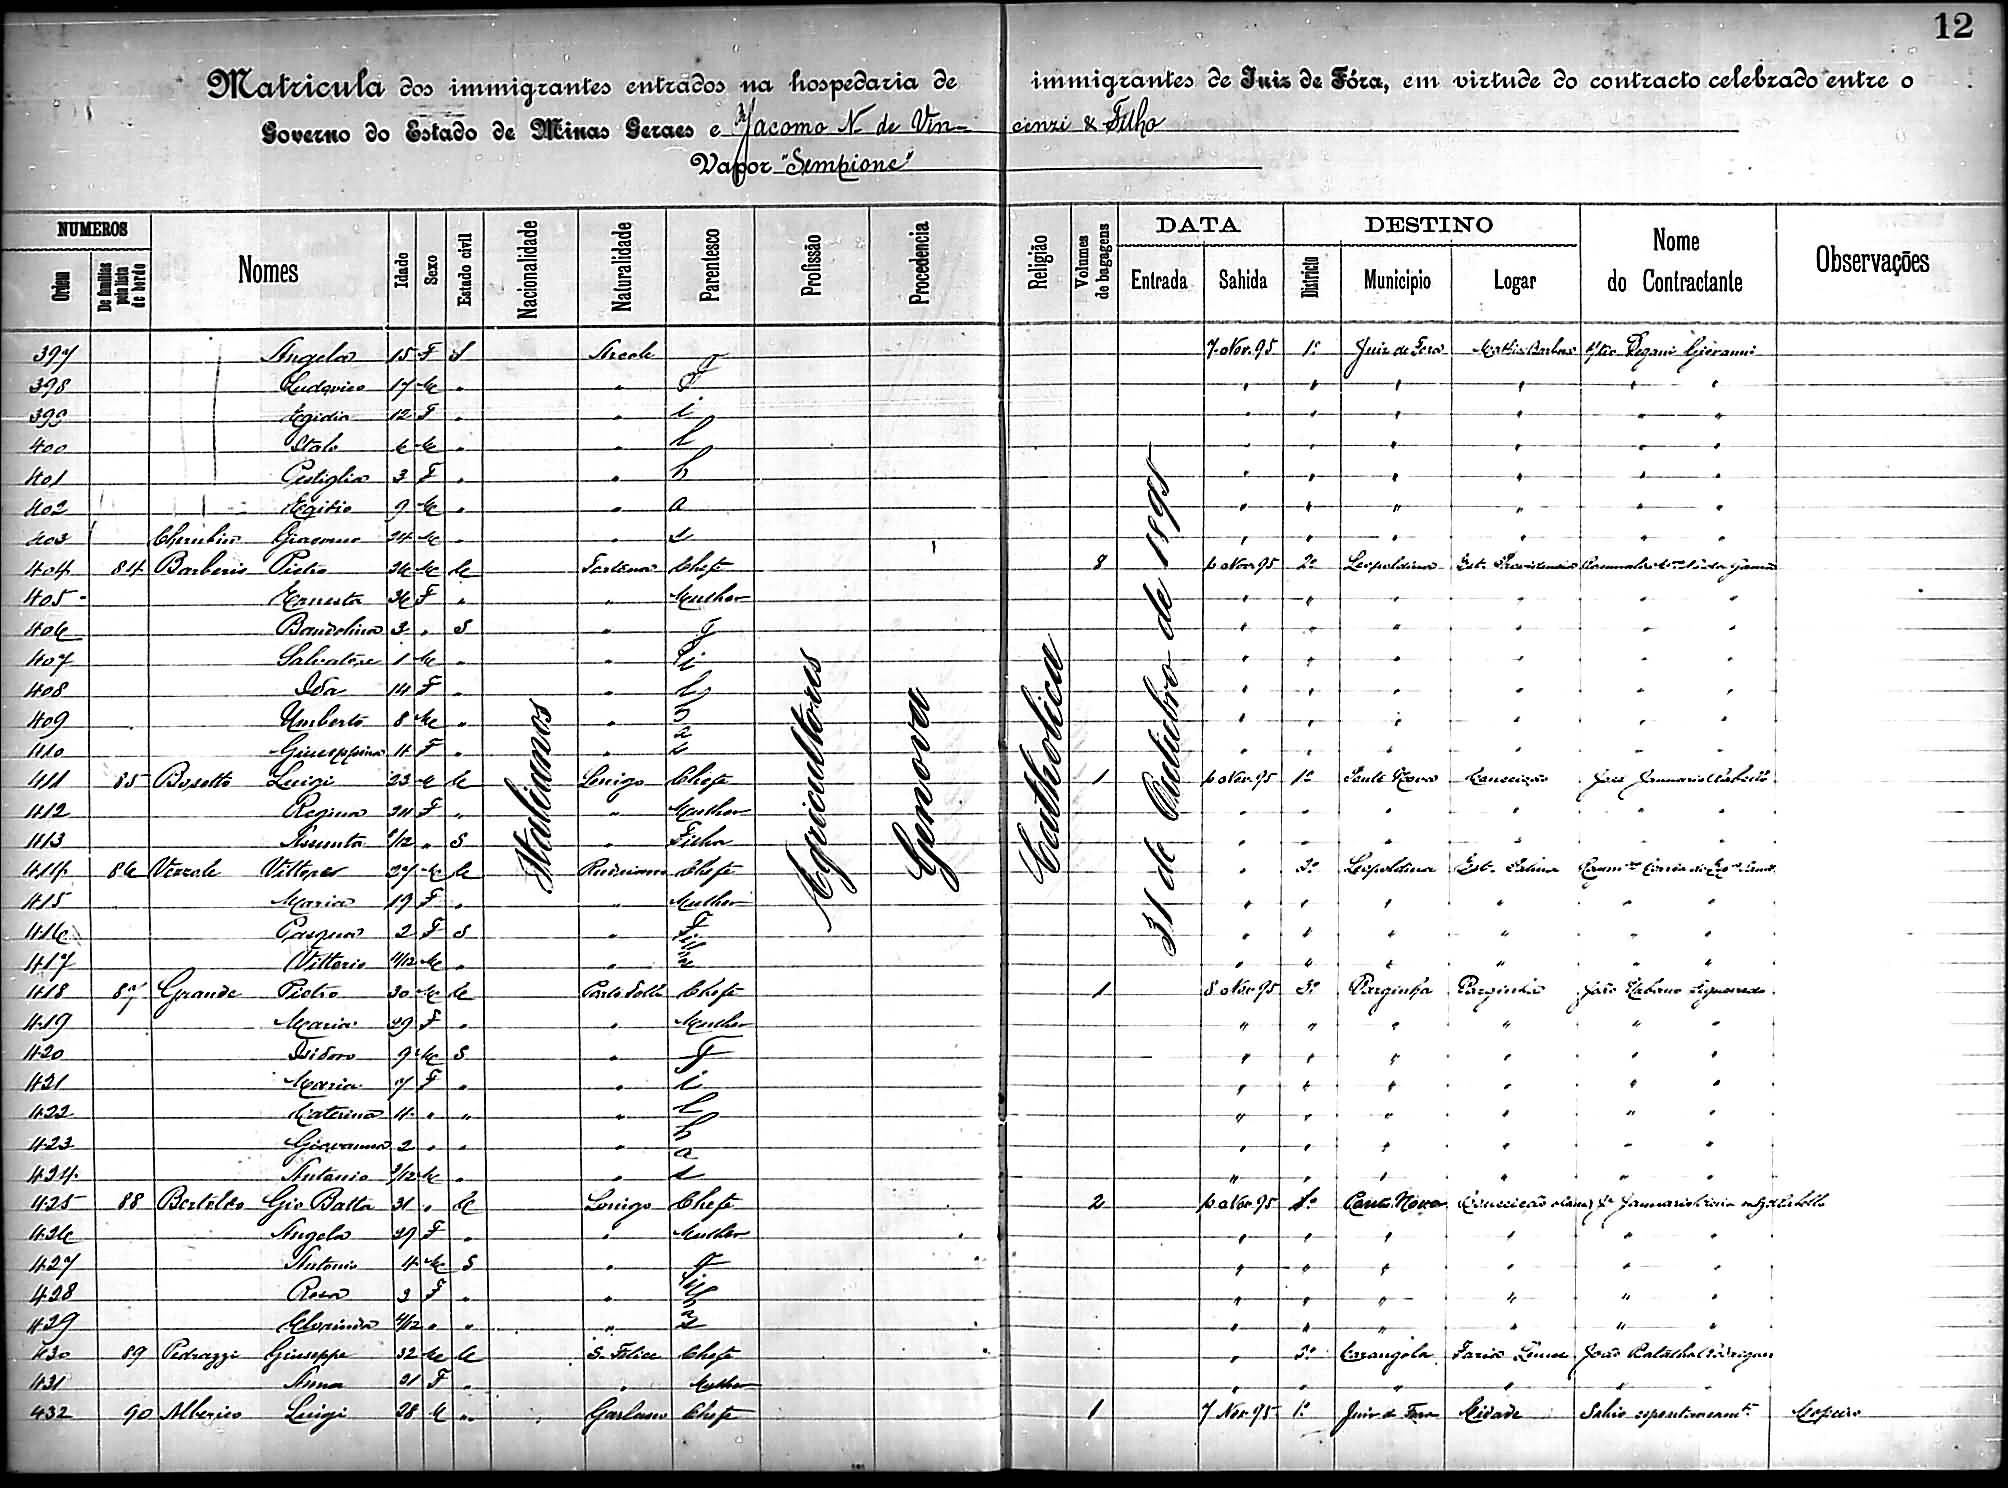 12
Matricula dos immigrantes entrados na hospedaria de immigrantes de Juiz de Fóra, em virtude do contracto celebrado entre o
Governo do Estado de Minas Geraes e Jacomo N. de Vincenzi & Filho
Vapor "Sempione"
NUMEROS Nomes Idade Sexo Estado civil Nacionalidade Naturalidade Parentesco Profissão Procedencia Religião Volumes de bagagens DATA DESTINO Nome do Contractante Observações
Ordem De familias pela lista de bordo Entrada Sahida Districto Municipio Logar
Italianos Agricultores Genova Catholica 31 de Outubro de 1895
397 Angela 15 F S Arcole F 7 Nov. 95 1º Juiz de Fora Giovanni
398 Ludovico 17 M " " " " " " " "
399 Egidia 12 F " " i " " " " " "
400 Italo 6 M " " l " " " " " "
401 3 F " " h " " " " " "
402 Egitio 9 M " " a " " " " " "
403 Cherubin Giacomo 24 M " " s " " " " " "
404 84 Barberis Pietro M C Chefe 8 6 Nov. 95 2º Leopoldina Est. Providencia
405 Ernesta 36 F " " Mulher " " " " " "
406 Bandolina 3 " S " F " " " " " "
407 Salvatore 1 M " " i " " " " " "
408 Ida 14 F " " l " " " " " "
409 Umberto 8 M " " h " " " " " "
410 Giuseppina 4 F " " " " " " " "
411 85 Bosetto Luigi 23 M C Lonigo Chefe 1 6 Nov. 95 1º Ponte Nova Conceição
412 Regina 24 F " " Mulher " " " " " "
413 Assunta " S " Filha " " " " " "
414 86 Vezzole 27 M C Chefe " 3º Leopoldina
415 Maria 19 F " " Mulher " " " " " "
416 Pasqua 2 F S " " " " " " "
417 Vittorio M " " " " " " " "
418 87 Grande Pietro 30 M C Porto Tolle Chefe 1 8 Nov. 95 3º Varginha Varginha João Urbano Figueiredo
419 Maria 29 F " " Mulher " " " " " "
420 Isidoro 9 M S " F " " " " " "
421 Maria 7 F " " i " " " " " "
422 Caterina 4 " " " l " " " " " "
423 Giovanna 2 " " " h " " " " " "
424 Antonio M " " " " " " " "
425 88 Bertoldo Gio Batta 31 " C Lonigo Chefe 2 6 Nov. 95 1º Ponte Nova Conceição
426 Angela 29 F " " Mulher " " " " " "
427 Antonio 4 M S " F " " " " " "
428 Rosa 3 F " " " " " " " "
429 Clorinda " " " " " " " " "
430 89 Pedrazzi Giuseppe 32 M C S. Felice Chefe " 3º Carangola Faria Lemos João Batalha Rodrigues
431 Anna 21 F " " Mulher " " " " " "
432 90 Alberico Luigi 28 M " Chefe 1 7 Nov. 95 1º Juiz de Fora Cidade Sahio espontaneamte. Copeiro